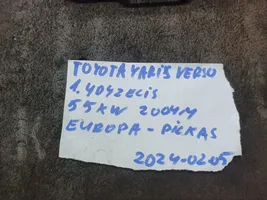 TOYOTA YARIS VERSO
1.4 D4Z ECIS
55KW 2004M
EUROPA - PICKAS
2024-02-05